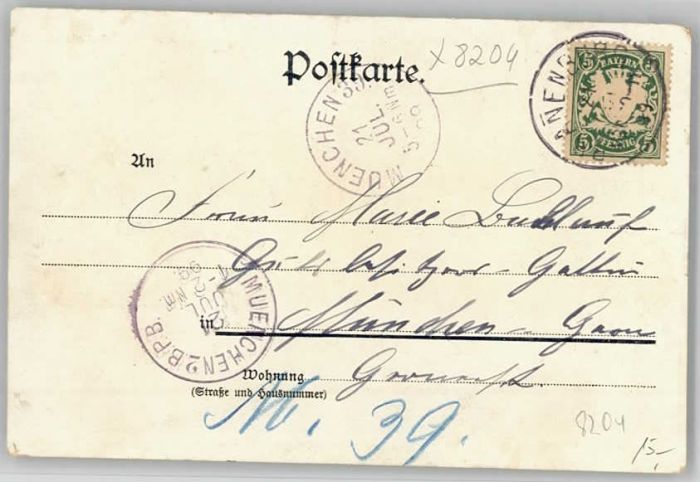 x 8204
Postkarte.
5 BAYERN 5
5 PFENNIG 5
MUENCHEN 39.
21
JUL.
5-6 Nm
99
An
Frau Marie
Gutsbesitzers-Gattin
in München
MUENCHEN 2 B.P.B.
21
JUL.
Nm.
99
Wohnung
(Straße und Hausnummer)
No. 39.
8204
15,-